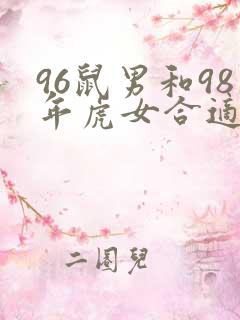 96鼠男和98
年虎女合適
二圈兒